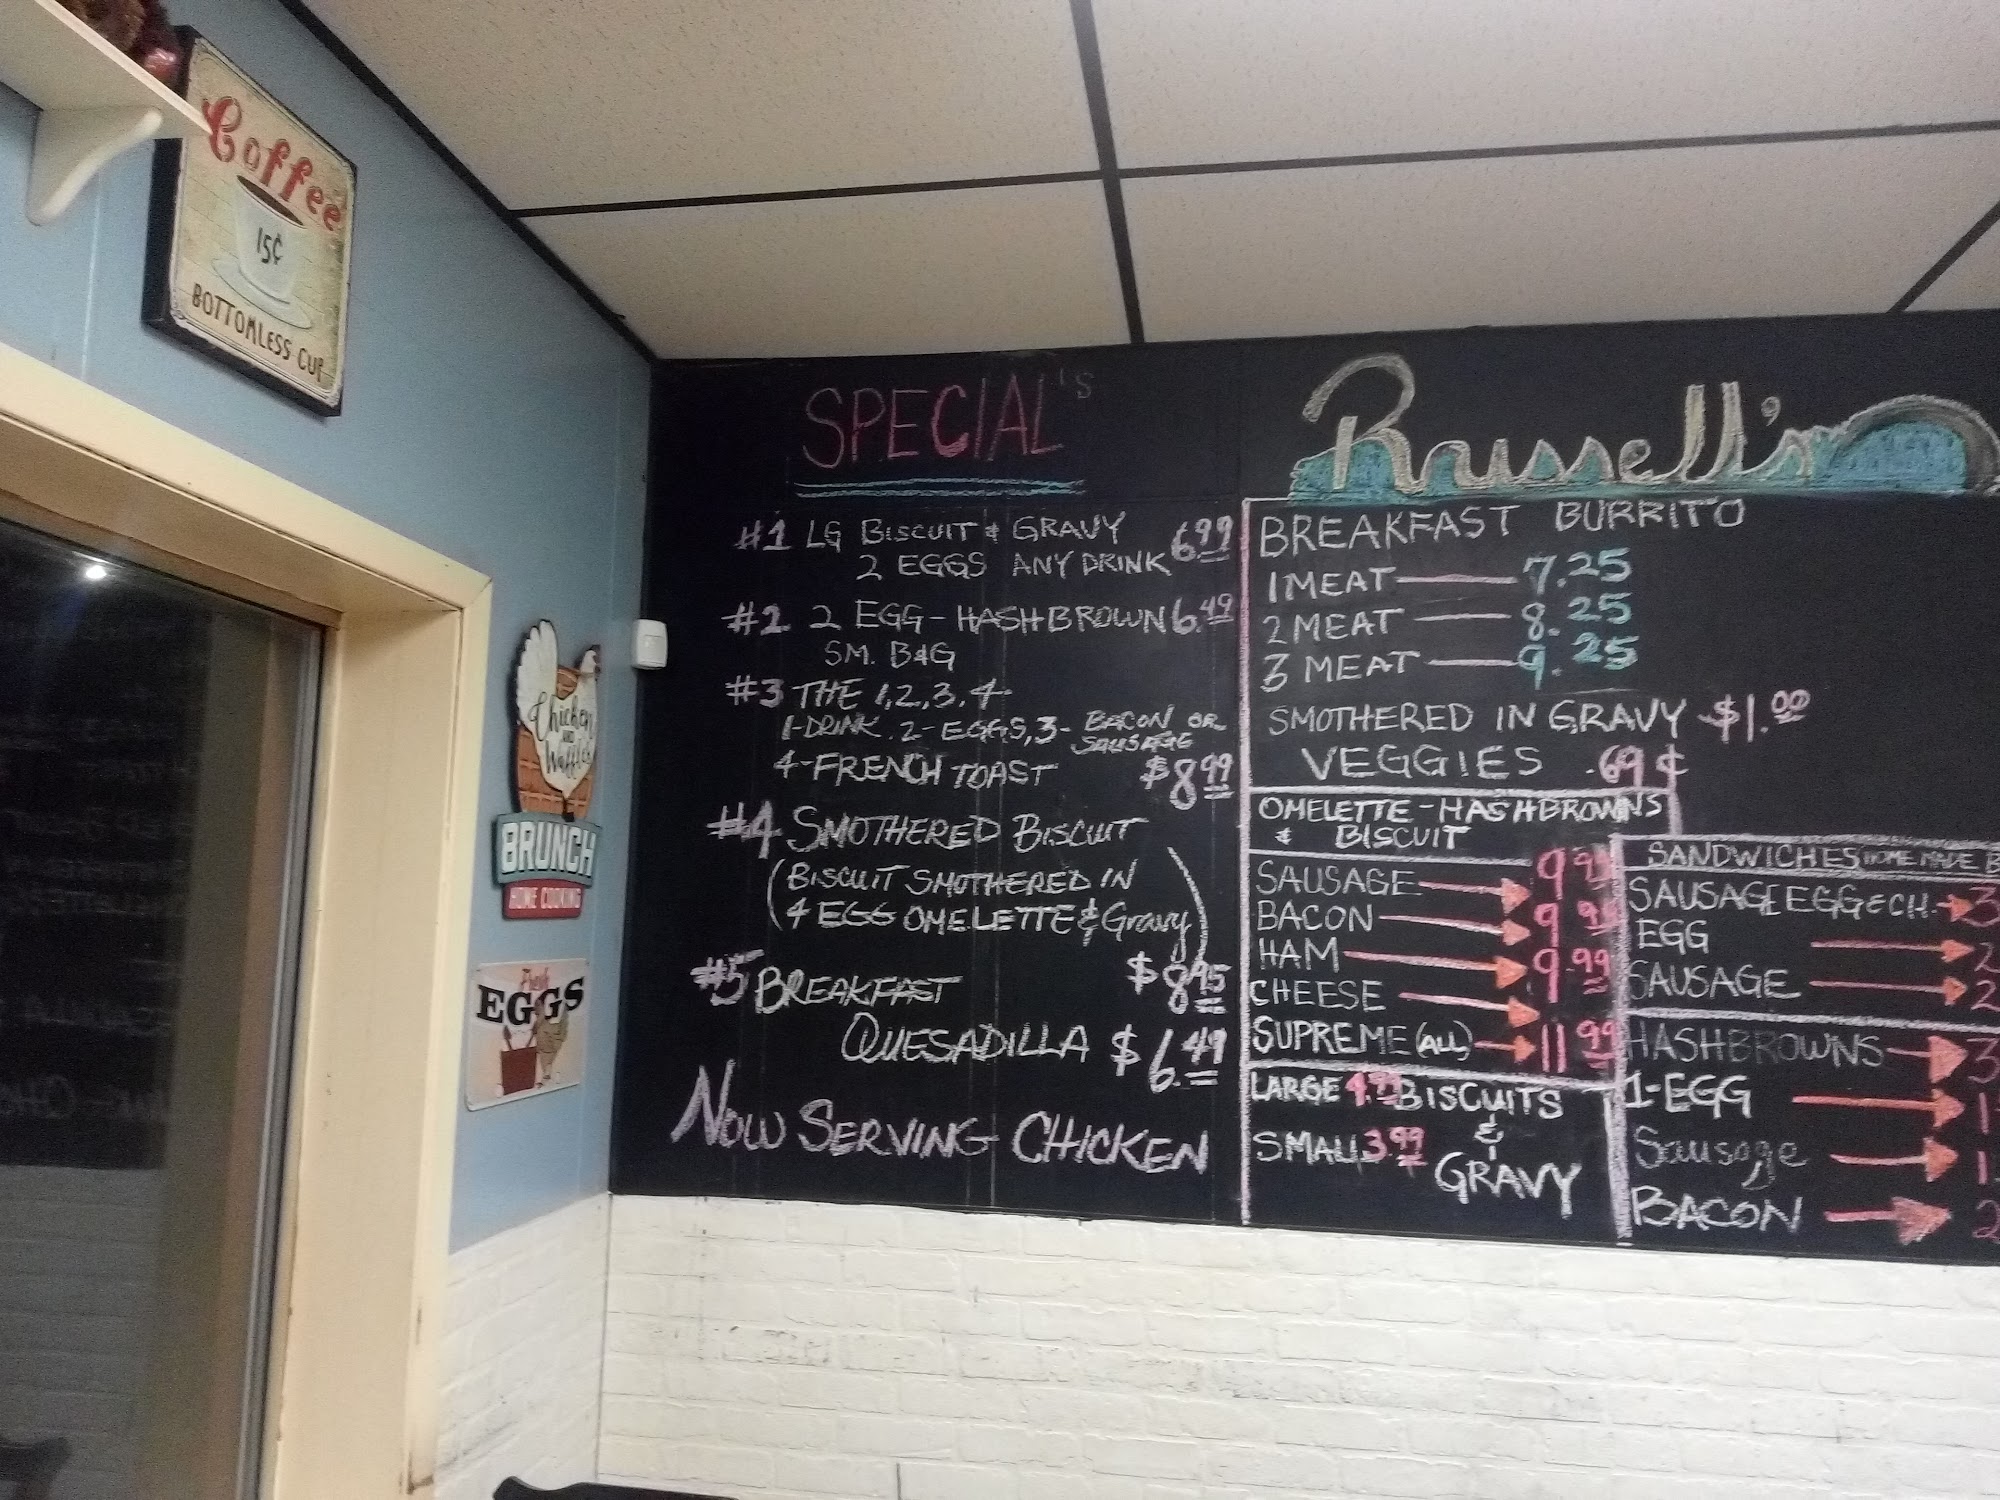 Coffee
15¢
BOTTOMLESS CUP
Chicken
AND
Waffles
BRUNCH
HOME COOKING
Fresh
EGGS
SPECIAL'S
#1 LG BISCUIT & GRAVY 6.99
2 EGGS ANY DRINK
#2 2 EGG - HASHBROWN 6.49
SM. B&G
#3 THE 1,2,3,4-
1-DRINK. 2-EGGS, 3- BACON OR
SAUSAGE
4-FRENCH TOAST $8.99
#4 SMOTHERED BISCUIT
(BISCUIT SMOTHERED IN
4 EGG OMELETTE & Gravy)
$8.95
#5 BREAKFAST
QUESADILLA $6.49
NOW SERVING CHICKEN
Russell's
BREAKFAST BURRITO
1 MEAT 7.25
2 MEAT 8.25
3 MEAT 9.25
SMOTHERED IN GRAVY $1.00
VEGGIES .69¢
OMELETTE - HASHBROWNS
& BISCUIT
SAUSAGE 9.99
BACON 9.99
HAM 9.99
CHEESE
SUPREME (ALL) 11.99
LARGE 4.99 BISCUITS
&
SMALL 3.99 GRAVY
SANDWICHES HOME MADE B
SAUSAGE EGG & CH. 3
EGG 2
SAUSAGE 2
HASHBROWNS 3
1-EGG 1
Sausage 1
BACON 2